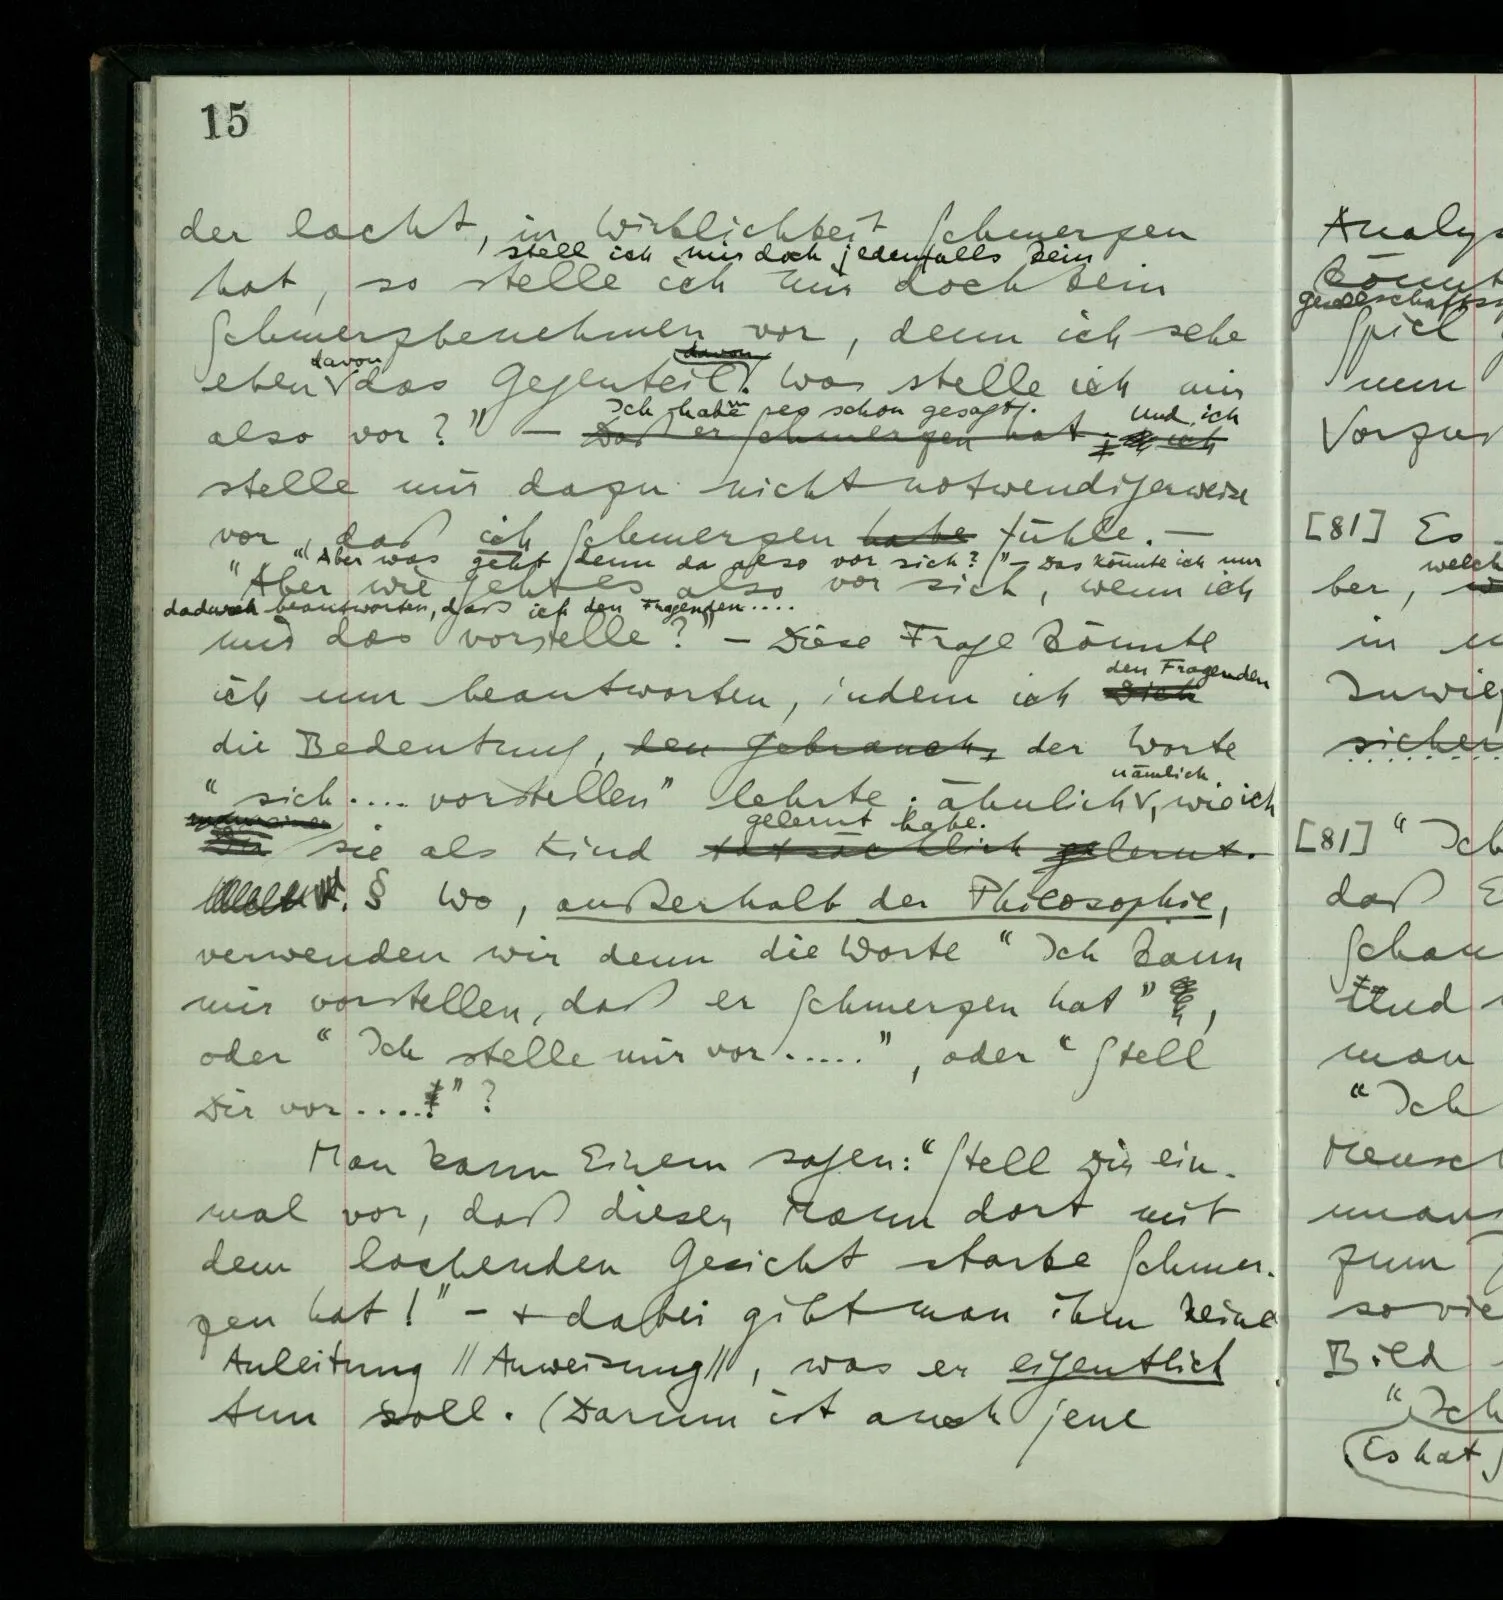 15
der lacht, in Wirklichkeit Schmerzen
stell ich mir doch jedenfalls kein
hat, so stelle ich mir doch kein
Schmerzbenehmen vor, denn ich sehe
davon davon
eben das Gegenteil. Was stelle ich mir
Ich habe es schon gesagt. und ich
also vor?" – Daß er Schmerzen hat; ich
stelle mir dazu nicht notwendigerweise
vor, daß ich Schmerzen habe fühle. —
"Aber was geht denn da also vor sich?" – Das könnte ich nur
"Aber wie geht es also vor sich, wenn ich
dadurch beantworten, daß ich den Fragenden....
mir das vorstelle?" – Diese Frage könnte
den Fragenden
ich nur beantworten, indem ich Dich
die Bedeutung, den Gebrauch, der Worte
nämlich
"sich .... vorstellen" lehrte; ähnlich, wie ich
gelernt habe.
Du sie als Kind tatsächlich gelernt.
§ Wo, außerhalb der Philosophie,
verwenden wir denn die Worte "Ich kann
mir vorstellen, daß er Schmerzen hat",
oder "Ich stelle mir vor .....", oder "Stell
Dir vor ....!"?
Man kann Einem sagen: "Stell Dir ein-
mal vor, daß dieser Mann dort mit
dem lachenden Gesicht starke Schmer-
zen hat!" – + dabei gibt man ihm keine
Anleitung //Anweisung//, was er eigentlich
tun soll. (Darum ist auch jene
Analys
könnt
gesellschafts
Spiel
nun
Vorzus
[81] Es
welch
ber,
in
Inwief
sicher
[81] "Ich
daß E
schau
Und
man
"Ich
Mensch
zum
sovie
Bild
"Ich
Es hat